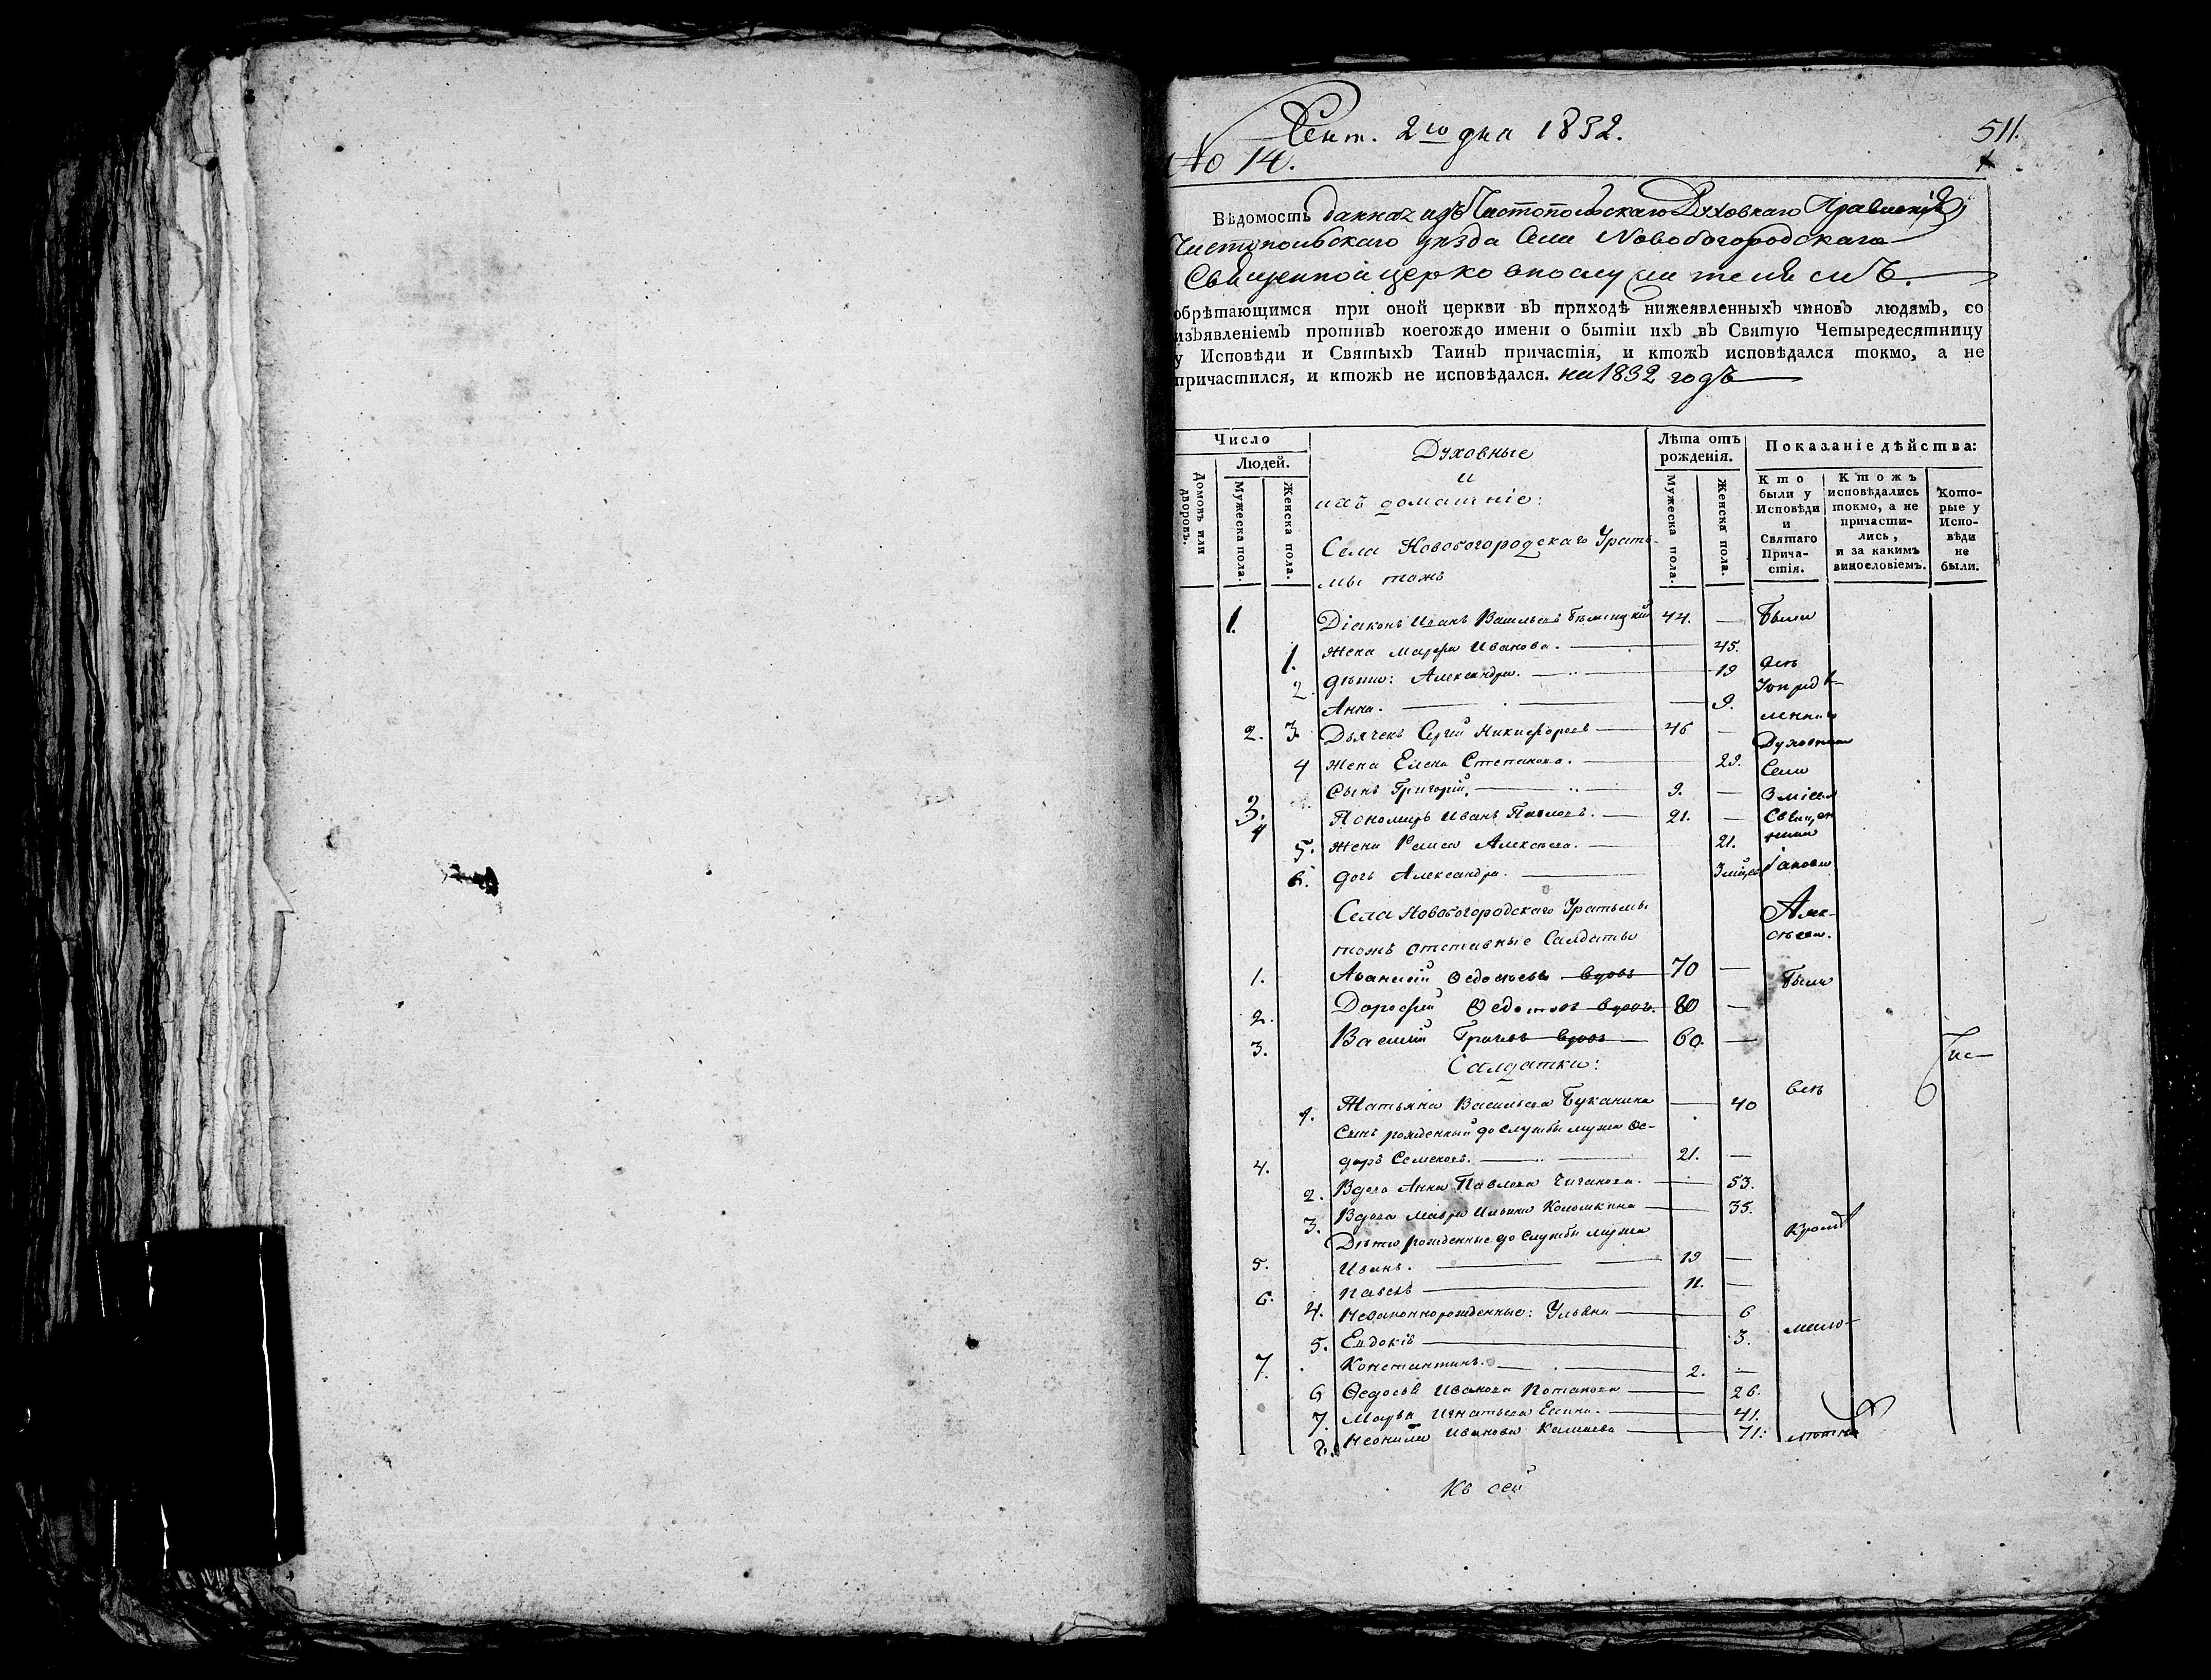 Сент. 2го дня 1832.
511.
No 14.
Вѣдомость данная изъ Чистопольскаго Духовнаго Правленія
Чистопольскаго уѣзда Села Новобогородскаго
Священной церковнослужителямъ.
обрѣтающимся при оной церкви въ приходѣ нижеявленныхъ чиновъ людямъ, со
изъявленіемъ противъ коегождо имени о бытіи ихъ въ Святую Четыредесятницу
у Исповѣди и Святыхъ Таинъ причастія, и ктожъ исповѣдался токмо, а не
причастился, и ктожъ не исповѣдался. на 1832 годъ
Число
Людей.
Домовъ или дворовъ.
Мужеска пола.
Женска пола.
Духовные
и
ихъ домашніе:
Лѣта отъ рожденія.
Мужеска пола.
Женска пола.
Показаніе дѣйства:
Кто были у Исповѣди и Святаго Причастія.
Ктожъ исповѣдались токмо, а не причастились, и за какимъ винословіемъ.
Которые у Исповѣди не были.
Села Новобогородскаго Урать-
мы тожъ
1. Діаконъ Иванъ Васильевъ 44. — Были
1. Жена Марфа Иванова. — 45.
2. дѣти: Александра. — 19
Анна. — 9.
2. 3. Дьячекъ Сергій Никифоровъ — 46 — Духовнаго
4 Жена Елена Степанова. — 29. Села
Сынъ Григорій. — 9. —
3. 4 Пономарь Иванъ Павловъ. — 21. — Священ
5. Жена Раиса Алексѣева. — 21.
6. дочь Александра. — Іаковъ
Села Новобогородскаго Уратьмы Алек-
тожъ отставные Салдаты сѣевъ.
1. Афанасій Ѳедосѣевъ вдовъ 70 — Были
2. Дорофей Ѳедотовъ вдовъ. 80 —
3. Василій Грачевъ вдовъ — 60. —
Салдатки:
1. Татьяна Васильева Буканина — 40 всѣ
Сынъ рожденный до службы мужа Ѳе-
4. доръ Семеновъ. — 21. —
2. Вдова Анна Павлова Чиганова. — 53.
3. Вдова Мавра Ильина Колошкина — 35.
Дѣти рожденные до службы мужа кромѣ
5. Иванъ. — 19 —
6. Павелъ — 11. —
4. Незаконнорожденные: Ульяна — 6
5. Евдокія — 3. мало-
7. Константинъ. — 2. —
6 Ѳедосья Иванова Потапова — 26.
7. Марья Игнатьева Есина. — 41.
8. Неонила Иванова Калмаева — 71. лѣтна
Къ сей